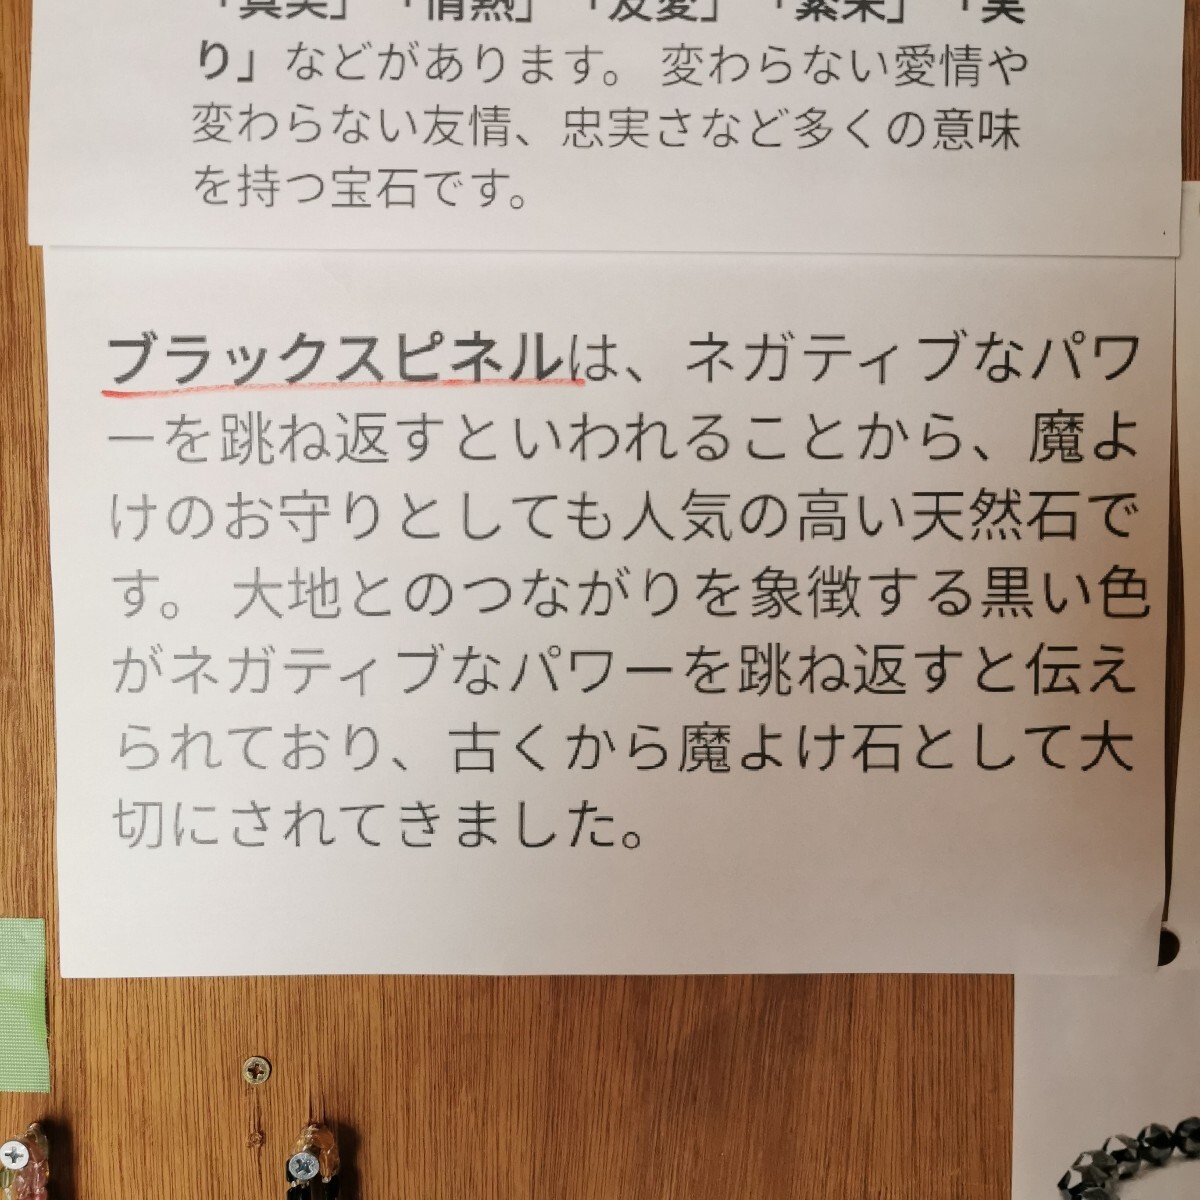 「真実」「情熱」「友愛」「繁栄」「実
り」などがあります。 変わらない愛情や
変わらない友情、忠実さなど多くの意味
を持つ宝石です。
ブラックスピネルは、ネガティブなパワ
ーを跳ね返すといわれることから、魔よ
けのお守りとしても人気の高い天然石で
す。 大地とのつながりを象徴する黒い色
がネガティブなパワーを跳ね返すと伝え
られており、古くから魔よけ石として大
切にされてきました。